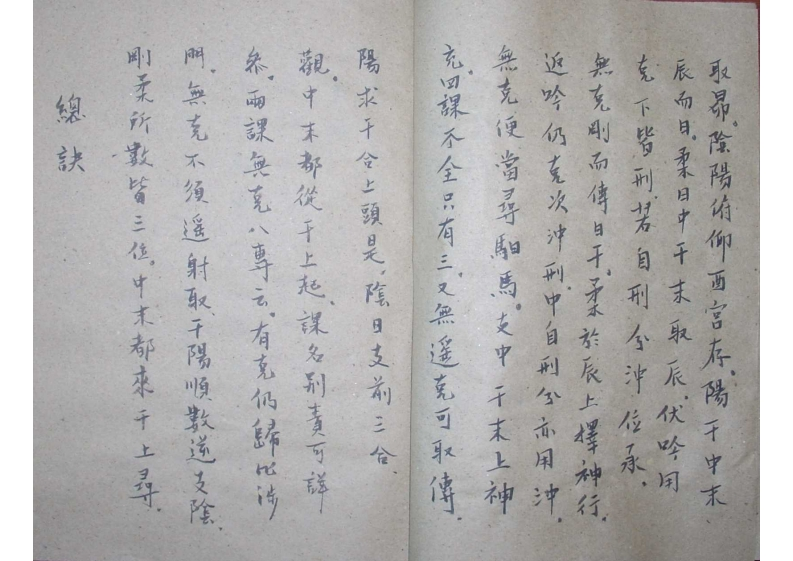 取昴。陰陽俯仰酉宮存。陽干中末
辰而日。柔日中干末取辰。伏吟用
克下皆刑。若自刑兮沖位承。
無克剛而傳日干。柔於辰上擇神行。
返吟仍克次沖刑。中自刑兮亦用沖。
無克便當尋馹馬。支中干末上神
充。四課不全只有三。又無遥克可取傳。
陽求干合上頭是。陰日支前三合
觀。中末都從干上起。課名別責可詳
叅。兩課無克八專云。有克仍歸比涉
門。無克不須遥射取。干陽順數逆支陰。
剛柔所數皆三位。中末都來干上尋。
總訣